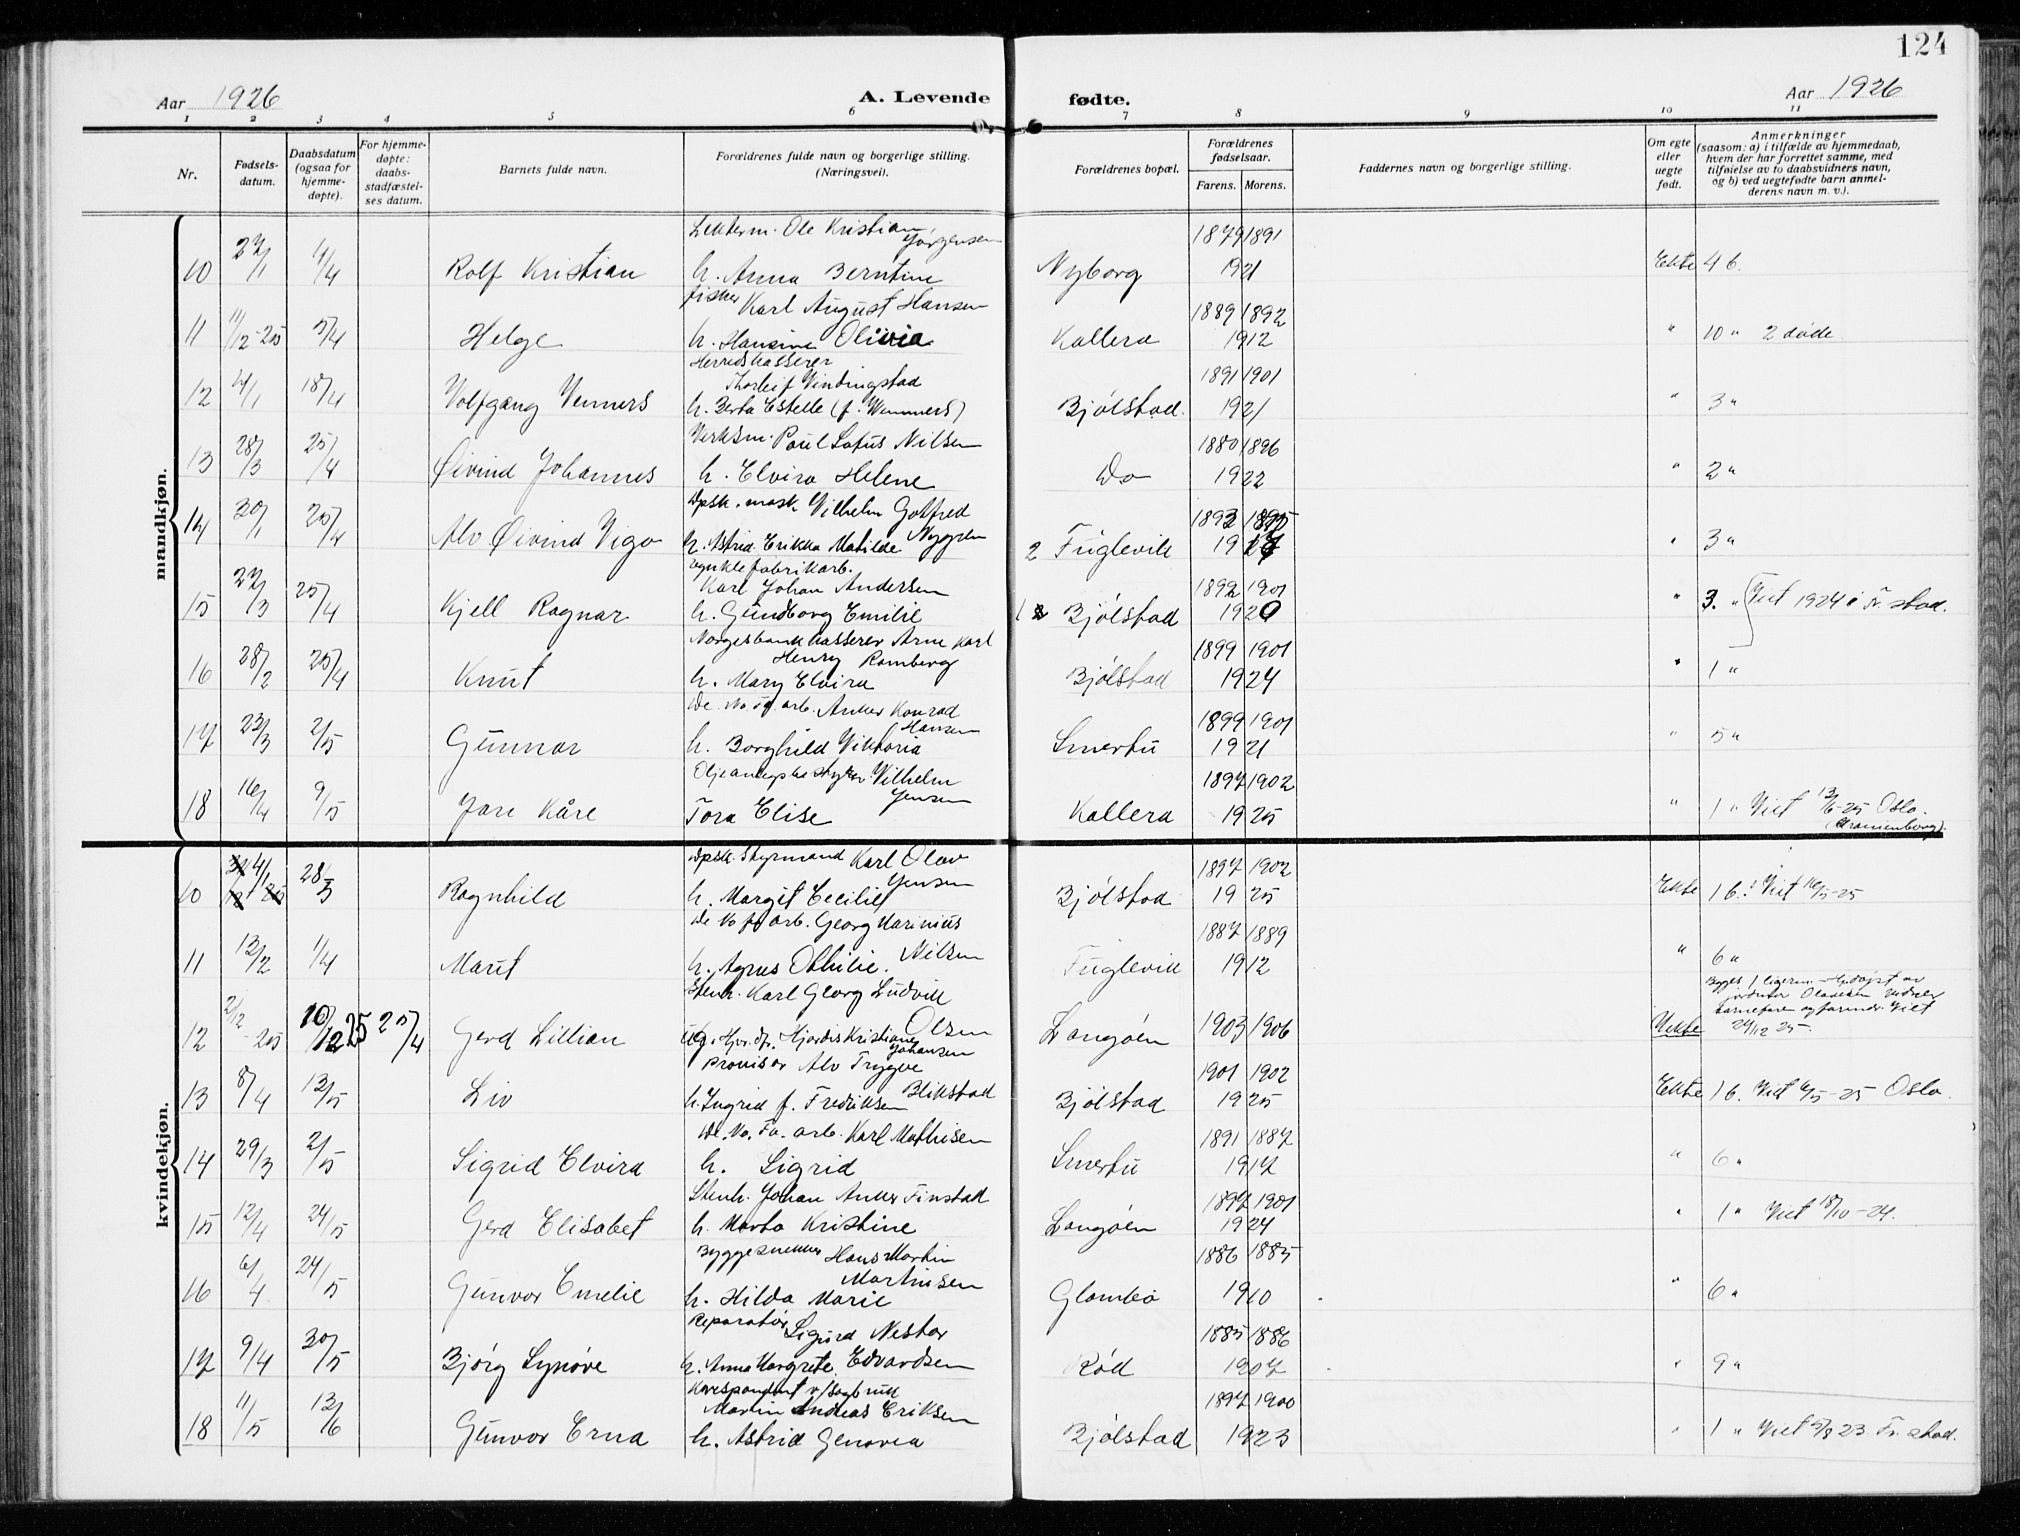 124
Aar 1926 A. Levende fødte. Aar 1926
1 2 3 4 5 6 7 8 9 10 11
Nr. Fødsels-datum. Daabsdatum (ogsaa for hjemme-døpte). For hjemme-døpte: daabs-stadfæstel-ses datum. Barnets fulde navn. Forældrenes fulde navn og borgerlige stilling. (Næringsvei). Forældrenes bopæl. Forældrenes fødselsaar. Farens. Morens. Faddernes navn og borgerlige stilling. Om egte eller uegte født. Anmerkninger (saasom: a) i tilfælde av hjemmedaab, hvem der har forrettet samme, med tilføielse av to daabsvidners navn, og b) ved uegtefødte barn anmel-derens navn m. v.).
mandkjøn.
Ole Kristian Jørgensen 1879 1891
10 27/1 1/4 Rolf Kristian h. Anna Berntine Nyborg 1921 Ekte 4 b.
fisker Karl August Hansen 1889 1892
11 11/12-25 5/4 Helge h. Hansine Olivia Kallera 1912 " 10 " 2 døde.
Herredskasserer
Thorleif Vindingstad 1891 1901
12 4/1 18/4 Volfgang Venners h. Berta Estelle (f. Wenners) Bjølstad. 1921 " 3 "
Verksm. Paul Lotus Nilsen 1880 1896
13 28/3 25/4 Øivind Johannes h. Elvira Helene Do 1922 " 2 "
Dpsk. mask Vilhelm Gotfred Nygren 1893 1895
14 30/1 25/4 Alv Øivind Vigo h. Astrid Erikka Matilde 2 Fuglevik 1917 " 3 "
fabrikarb.
Karl Johan Andersen 1892 1901
15 27/3 25/4 Kjell Ragnar h. Gundborg Emilie 1 Bjølstad 1920 " 3. " Viet 1924 i Fr. stad.
Norgesbank kasserer Arne Karl
Henry Romberg 1899 1901
16 28/2 25/4 Knut h. Mary Elvira Bjølstad 1924 " 1 "
De. No. fa. arb. Anker Konrad
Hansen 1899 1901
17 23/3 2/5 Gunnar h. Borghild Viktoria Smertu 1921 " 5 "
Vilhelm
Jensen 1897 1902
18 16/4 9/5 Jan Kåre Tora Elise Kallera 1925 " 1 " Viet 13/6-25 Oslo.
(Uranienborg).
kvindekjøn.
Dpsk. Styrmand Karl Olav
Jensen 1897 1902
10 4/1 28/3 Ragnhild h. Margit Cecilie Bjølstad 1925 Ekte 1 b. Viet 16/5-25
De No fa arb. Georg Marinius
Nilsen 1887 1889
11 13/2 1/4 Marit h. Agnes Othilie. Fuglevik 1912 " 6 "
Stenh. Karl Georg Ludvik
Olsen
12 2/12-25 10/12 25 25/4 Gerd Lillian Hjørdis Kristiane Johansen Langøen 1903 1906 Uekte Viet
24/12 25.
Provisor Alv Trygve
Blikstad 1901 1902
13 8/4 13/5 Liv h. Ingrid f. Fredriksen Bjølstad 1925 Ekte 1 b. Viet 6/5-25 Oslo.
De. No. Fa. arb. Karl Mathisen 1891 1887
14 29/3 2/5 Sigrid Elvira h. Sigrid Smertu 1917 " 6 "
Stenh. Johan Anker Finstad 1897 1901
15 12/4 24/5 Gerd Elisabet h. Marta Kristine Langøen 1924 " 1 " Viet 18/10-24.
Byggesnekker Hans Martin
Martinsen 1886 1885
16 6/4 24/5 Gunvor Emelie h. Hilda Marie Glombo 1910 " 6 "
Reparatør Sigurd Nestor
Edvardsen 1885 1886
17 9/4 30/5 Bjørg Synøve h. Anna Margrete Rød 1907 " 9 "
Korespondent v/Sagbruk
Martin Andreas Eriksen 1897 1900
18 11/5 13/6 Gunvor Erna h. Astrid Genovea Bjølstad 1923 " 1 " Viet 23 Fr. stad.